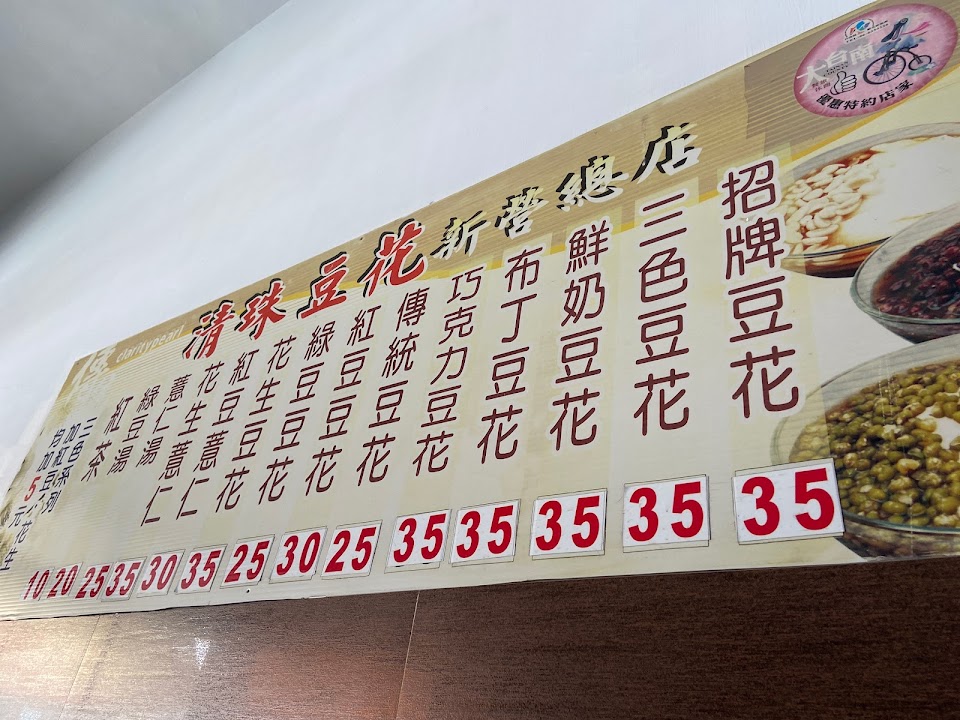 大台南
優惠特約店家
claritypearl
清珠豆花新營總店
招牌豆花
三色豆花
鮮奶豆花
布丁豆花
巧克力豆花
傳統豆花
紅豆豆花
綠豆豆花
花生豆花
花生薏仁
紅茶
三色系列
加紅豆、花生
均加5元
10 20 25 35 30 35 25 30 25 35 35 35 35 35